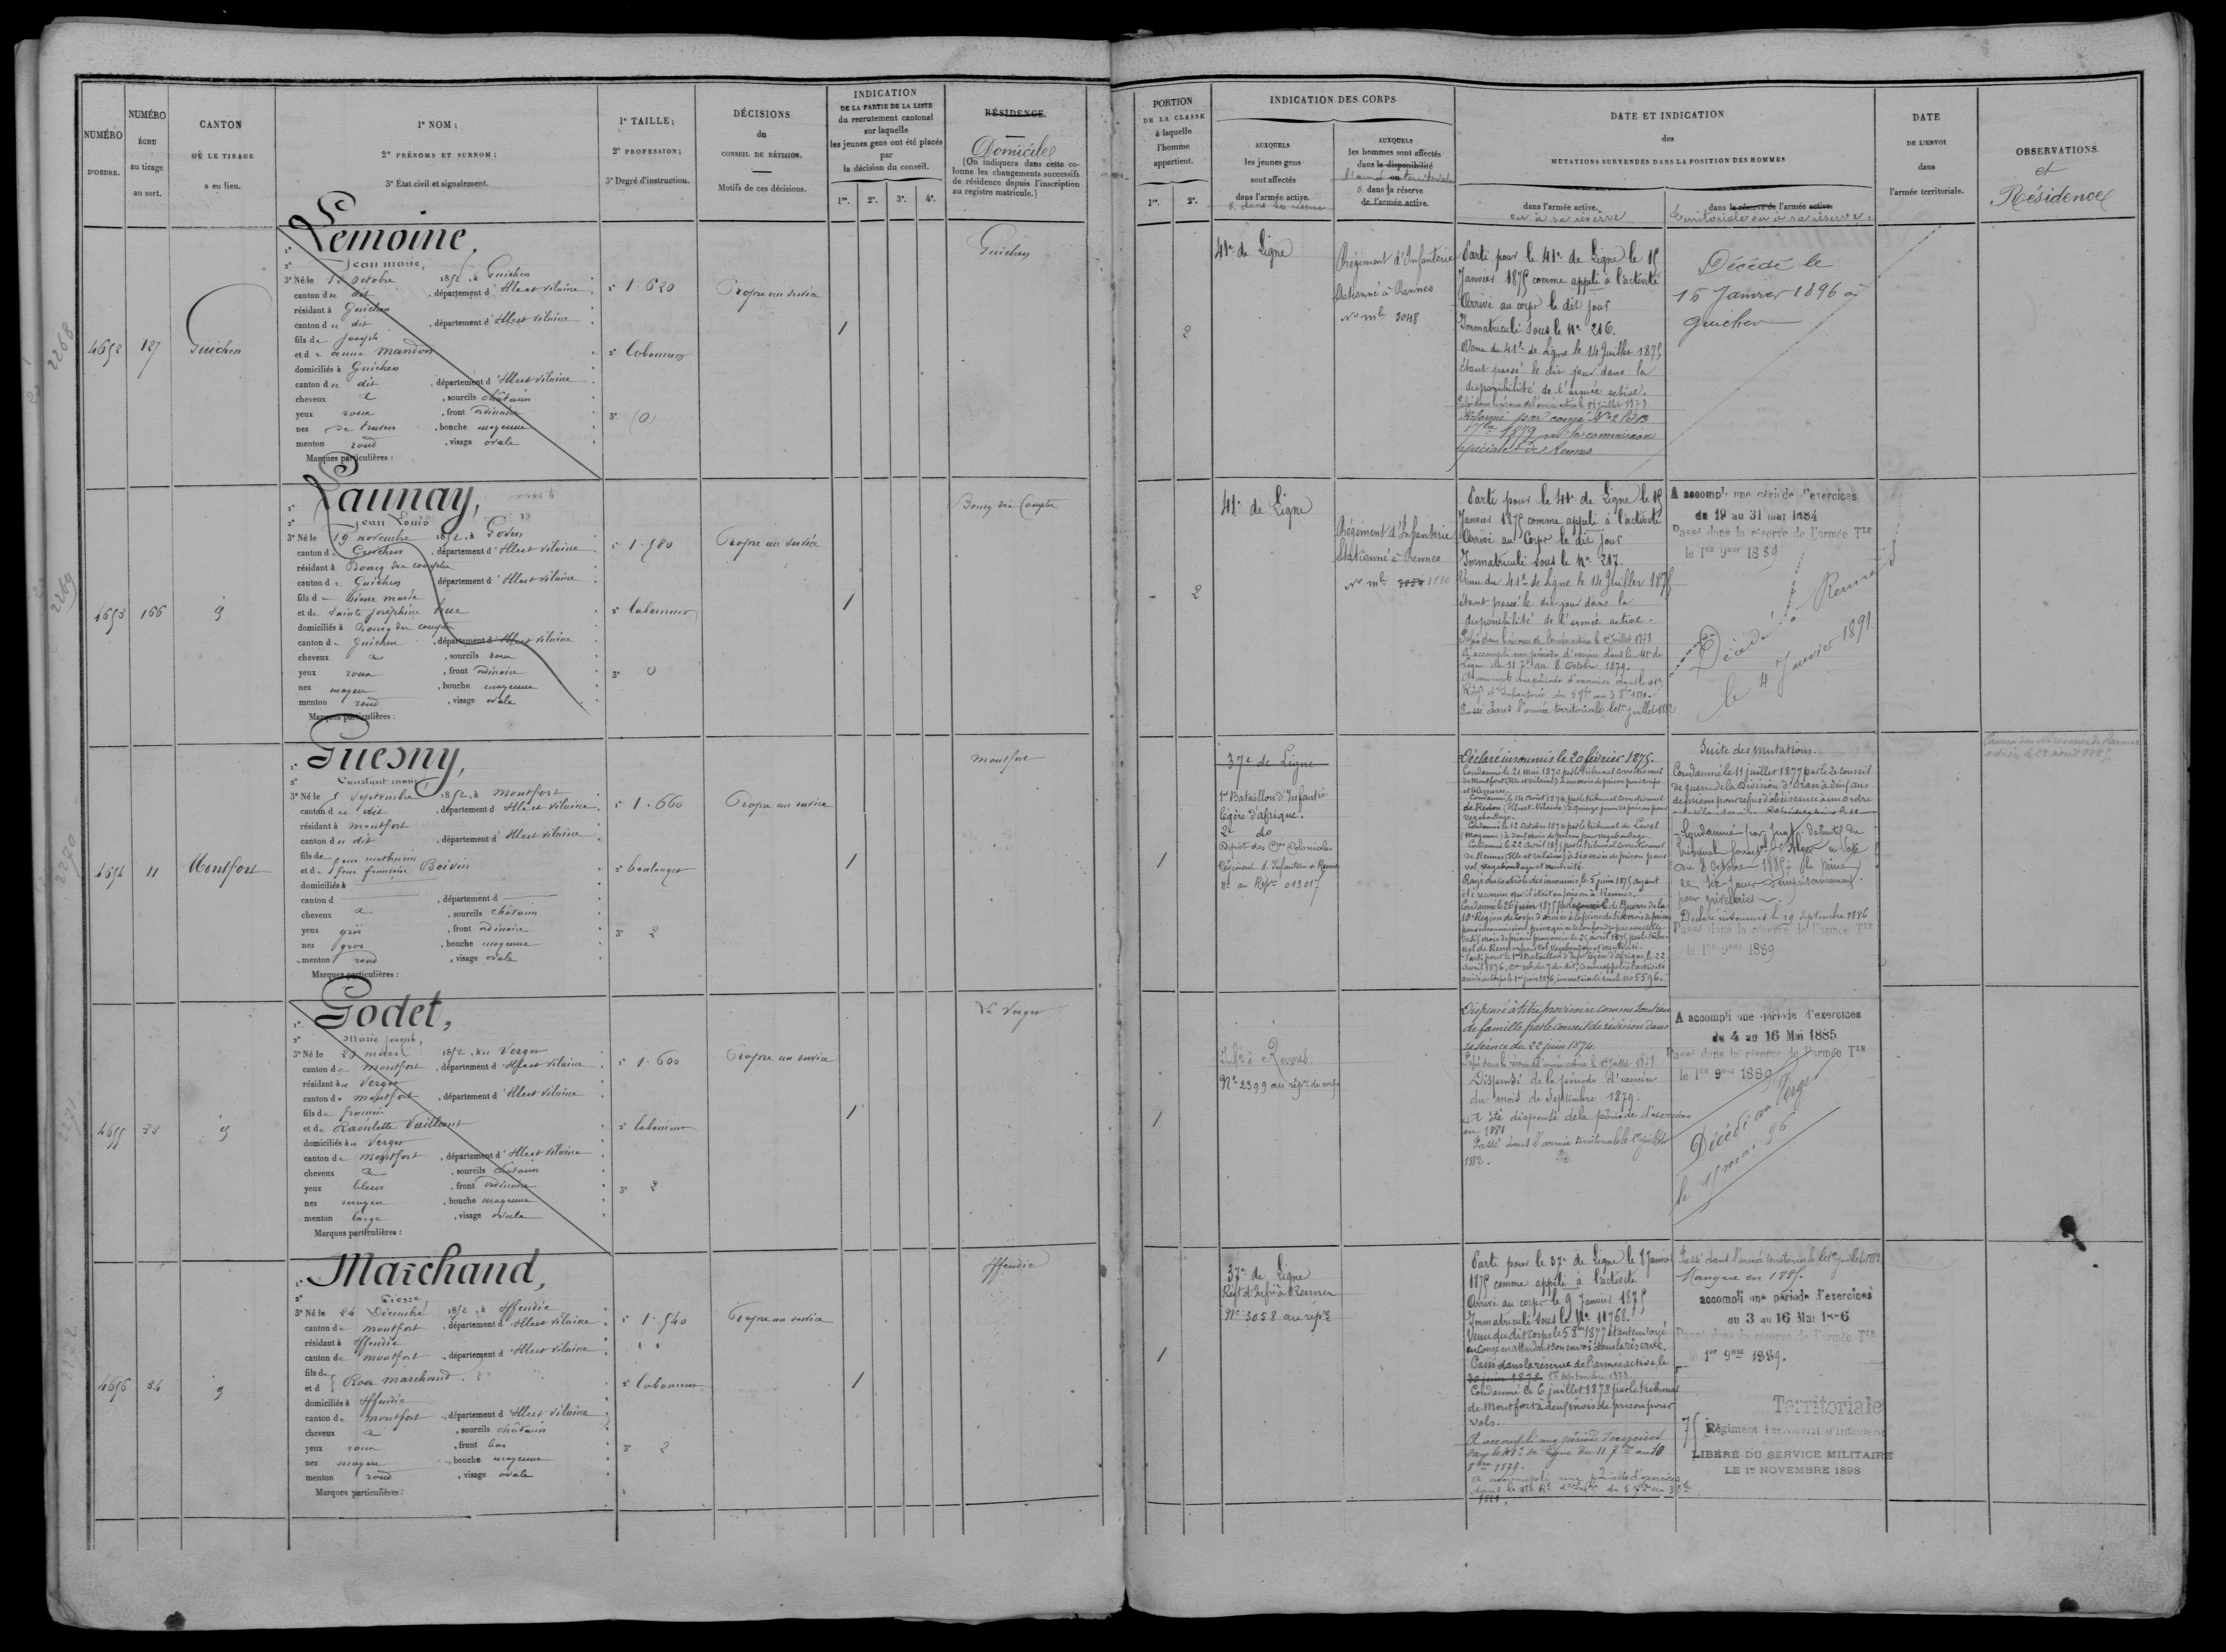 NUMÉRO
D'ORDRE.
NUMÉRO
ÉCHU
au tirage
au sort.
CANTON
OÙ LE TIRAGE
a eu lieu.
1° NOM;
2° PRÉNOMS ET SURNOM;
3° État civil et signalement.
1° TAILLE;
2° PROFESSION;
3° Degré d'instruction.
DÉCISIONS
du
CONSEIL DE RÉVISION.
Motifs de ces décisions.
INDICATION
DE LA PARTIE DE LA LISTE
du recrutement cantonal
sur laquelle
les jeunes gens ont été placés
par
la décision du conseil.
1re. 2e. 3e. 4e.
RÉSIDENCE.
Domicile
(On indiquera dans cette co-
lonne les changements successifs
de résidence depuis l'inscription
au registre matricule.)
PORTION
DE LA CLASSE
à laquelle
l'homme
appartient.
1re. 2e.
INDICATION DES CORPS
AUXQUELS
les jeunes gens
sont affectés
dans l'armée active.
& dans sa réserve
AUXQUELS
les hommes sont affectés
dans la disponibilité
l'armée territoriale
& dans sa réserve
de l'armée active.
DATE ET INDICATION
des
MUTATIONS SURVENUES DANS LA POSITION DES HOMMES
dans l'armée active.
ou à sa réserve
dans la réserve de l'armée active.
territoriale ou à sa réserve.
DATE
DE L'ENVOI
dans
l'armée territoriale.
OBSERVATIONS.
et
Résidence
2268
4652
127
Guichen
1° Lemoine,
2° Jean marie,
3° Né le 12 octobre 1852, à Guichen
canton du dit, département d'Ille et vilaine
résidant à Guichen
canton du dit, département d'Ille et vilaine
fils de Joseph
et de anna Mandon
domiciliés à Guichen
canton du dit, département d'Ille et vilaine
cheveux &, sourcils châtains
yeux roux, front ordinaire
nez , bouche moyenne
menton rond, visage ovale
Marques particulières :
1° 1.620
2° laboureur
3° (0)
Propre au service
1
Guichen
2
41e de Ligne
Régiment d'Infanterie
stationné à Rennes
No mle 3048
Parti pour le 41e de Ligne le 15
Janvier 1875 comme appelé à l'activité
Arrivé au corps le dit jour
Immatriculé sous le No 216.
Venu du 41e de Ligne le 14 Juillet 1875
étant passé le dit jour dans la
disponibilité de l'armée active.
Réformé par congé No 2 le 13
1879 par la commission
spéciale de Rennes
Décédé le
15 Janvier 1896 à
Guichen
2269
4653
166
d
1° Launay,
2° Jean Louis
3° Né le 19 novembre 1852, à Goven
canton de Guichen, département d'Ille et vilaine
résidant à Bourg des comptes
canton de Guichen, département d'Ille et vilaine
fils de Pierre marie
et de Sainte Joséphine hue
domiciliés à Bourg des comptes
canton de Guichen, département d'Ille et vilaine
cheveux &, sourcils roux
yeux roux, front ordinaire
nez moyen, bouche moyenne
menton rond, visage ovale
Marques particulières :
1° 1.580
2° laboureur
3° 0
Propre au service
1
Bourg des Comptes
2
41e de Ligne
Régiment d'Infanterie
Stationné à Rennes
No mle 3054 1880
Parti pour le 41e de Ligne le 15
Janvier 1875 comme appelé à l'activité
Arrivé au Corps le dit jour
Immatriculé sous le No 217.
Venu du 41e de Ligne le 14 Juillet 1875
étant passé le dit jour dans la
disponibilité de l'armée active.
Passé dans la réserve de l'armée active le 1er Juillet 1878.
A accompli une période d'exercice dans le 41e de
Ligne du 11 7bre au 8 Octobre 1879.
A accompli une période d'exercices dans le 41e
Régt d'Infanterie du 5 7bre au 3 8bre 1881.
Passé dans l'armée territoriale le 1er juillet 1882
A accompli une période d'exercices
du 19 au 31 mai 1884
Passé dans la réserve de l'armée TLE
le 1er 9bre 1889
Décédé à Rennes
le 4 Janvier 1891.
2270
4654
11
Montfort
1° Guesny,
2° Constant marie
3° Né le 5 septembre 1852, à Montfort
canton du dit, département d'Ille et vilaine
résidant à montfort
canton du dit, département d'Ille et vilaine
fils de feu mathurin
et de feue françoise Boivin
domiciliés à
canton d, département d
cheveux &, sourcils châtains
yeux gris, front ordinaire
nez gros, bouche moyenne
menton rond, visage ovale
Marques particulières :
1° 1.660
2° boulanger
3° 2
Propre au service
1
montfort
1
37e de Ligne
1er Bataillon d'Infantie
légère d'afrique.
2e do
Dépôt des Cies Coloniales
Régiment d'Infanterie à Rennes
No au Répre 01301
Déclaré insoumis le 20 février 1875.
Condamné le 21 mai 1870 par le tribunal correctionnel
de Montfort (Ille et Vilaine) à un mois de prison pour coups
et blessures.
Condamné le 14 Août 1874 par le tribunal correctionnel
de Redon (Ille et Vilaine) à quinze jours de prison pour
vagabondage.
Condamné le 12 Octobre 1874 par le tribunal de Laval
(Mayenne) à deux mois de prison pour vagabondage.
Condamné le 22 Avril 1875 par le tribunal correctionnel
de Rennes (Ille et vilaine) à six mois de prison pour
vol, vagabondage et mendicité.
Rayé du contrôle des insoumis le 5 juin 1875 ayant
été reconnu qu'il était en prison à Rennes.
Condamné le 26 juin 1875 par le conseil de Guerre de la
10e Région de Corps d'armée à la peine de Six mois de prison
Parti pour le 1er Bataillon d'Infie légère d'afrique le 22
avril 1876,
arrivé au corps le 1er juin 1876, immatriculé sous le No 5596.
Suite des mutations.
Condamné le 11 juillet 1877 par le 2e Conseil
de guerre de la Division d'Oran à deux ans
de prison pour refus d'obéissance à un ordre
Condamné par Jugt définitif du
tribunal d'Alger
du 8 Octobre 1885 à la peine
de six jours d'emprisonnement
pour grivèlerie.
Déclaré insoumis le 19 septembre 1886
Passé dans la réserve de l'armée TLE
le 1er 9bre 1889
2271
4655
33
d
1° Godet,
2° Marie Joseph,
3° Né le 25 mars 1852, au Verger
canton de montfort, département d'Ille et vilaine
résidant au Verger
canton de montfort, département d'Ille et vilaine
fils de francois
et de Raoulette Vaillant
domiciliés au Verger
canton de montfort, département d'Ille et vilaine
cheveux &, sourcils châtains
yeux bleus, front ordinaire
nez moyen, bouche moyenne
menton large, visage ovale
Marques particulières :
1° 1.600
2° laboureur
3° 2
Propre au service
1
Le Verger
1
Infie à Rennes.
No 2399 au répre du corps
Dispensé à titre provisoire comme soutien
de famille par le conseil de révision dans
sa séance du 22 juin 1874.
Dispensé de la période d'exercices
du mois de Septembre 1879.
A été dispensé de la période d'exercices
en 1881
Passé dans l'armée territoriale le 1er juillet
1882.
A accompli une période d'exercices
du 4 au 16 Mai 1885
Passé dans la réserve de l'armée TLE
le 1er 9bre 1889
Décédé au Verger
le 15 mai 96
2272
4656
34
d
1° Marchand,
2° Pierre,
3° Né le 24 Décembre 1852, à Iffendic
canton de montfort, département d'Ille et vilaine
résidant à Iffendic
canton de montfort, département d'Ille et vilaine
fils de
et d Rose Marchand
domiciliés à Iffendic
canton de montfort, département d'Ille et vilaine
cheveux &, sourcils châtains
yeux roux, front bas
nez moyen, bouche moyenne
menton rond, visage ovale
Marques particulières :
1° 1.540
2° laboureur
3° 2
Propre au service
1
Iffendic
1
37e de Ligne
Régt d'Infie à Rennes
No 3058 au répre
Parti pour le 37e de Ligne le 8 Janvier
1875 comme appelé à l'activité
Arrivé au corps le 9 Janvier 1875
Immatriculé sous le No 11768.
Venu du dit corps le 5 8bre 1877 étant envoyé
en congé en attendant son envoi dans la réserve.
Passé dans la réserve de l'armée active, le
30 juin 1878.
Condamné le 6 juillet 1878 par le tribunal
de Montfort à deux mois de prison pour
vols.
A accompli une période d'exercices
dans le 41e de Ligne du 11 7bre au 10
8bre 1879.
A accompli une période d'exercices
dans le 41e Rt d'Infie du 5 7bre au 3 8bre
1881.
Passé dans l'armée territoriale le 1er juillet 1882.
Manque en 1885.
accompli une période d'exercices
du 3 au 16 Mai 1886
Passé dans la réserve de l'armée TLE
le 1er 9bre 1889.
Territoriale
75 Régiment Territorial d'Infanterie
LIBÉRÉ DU SERVICE MILITAIRE
LE 1er NOVEMBRE 1898